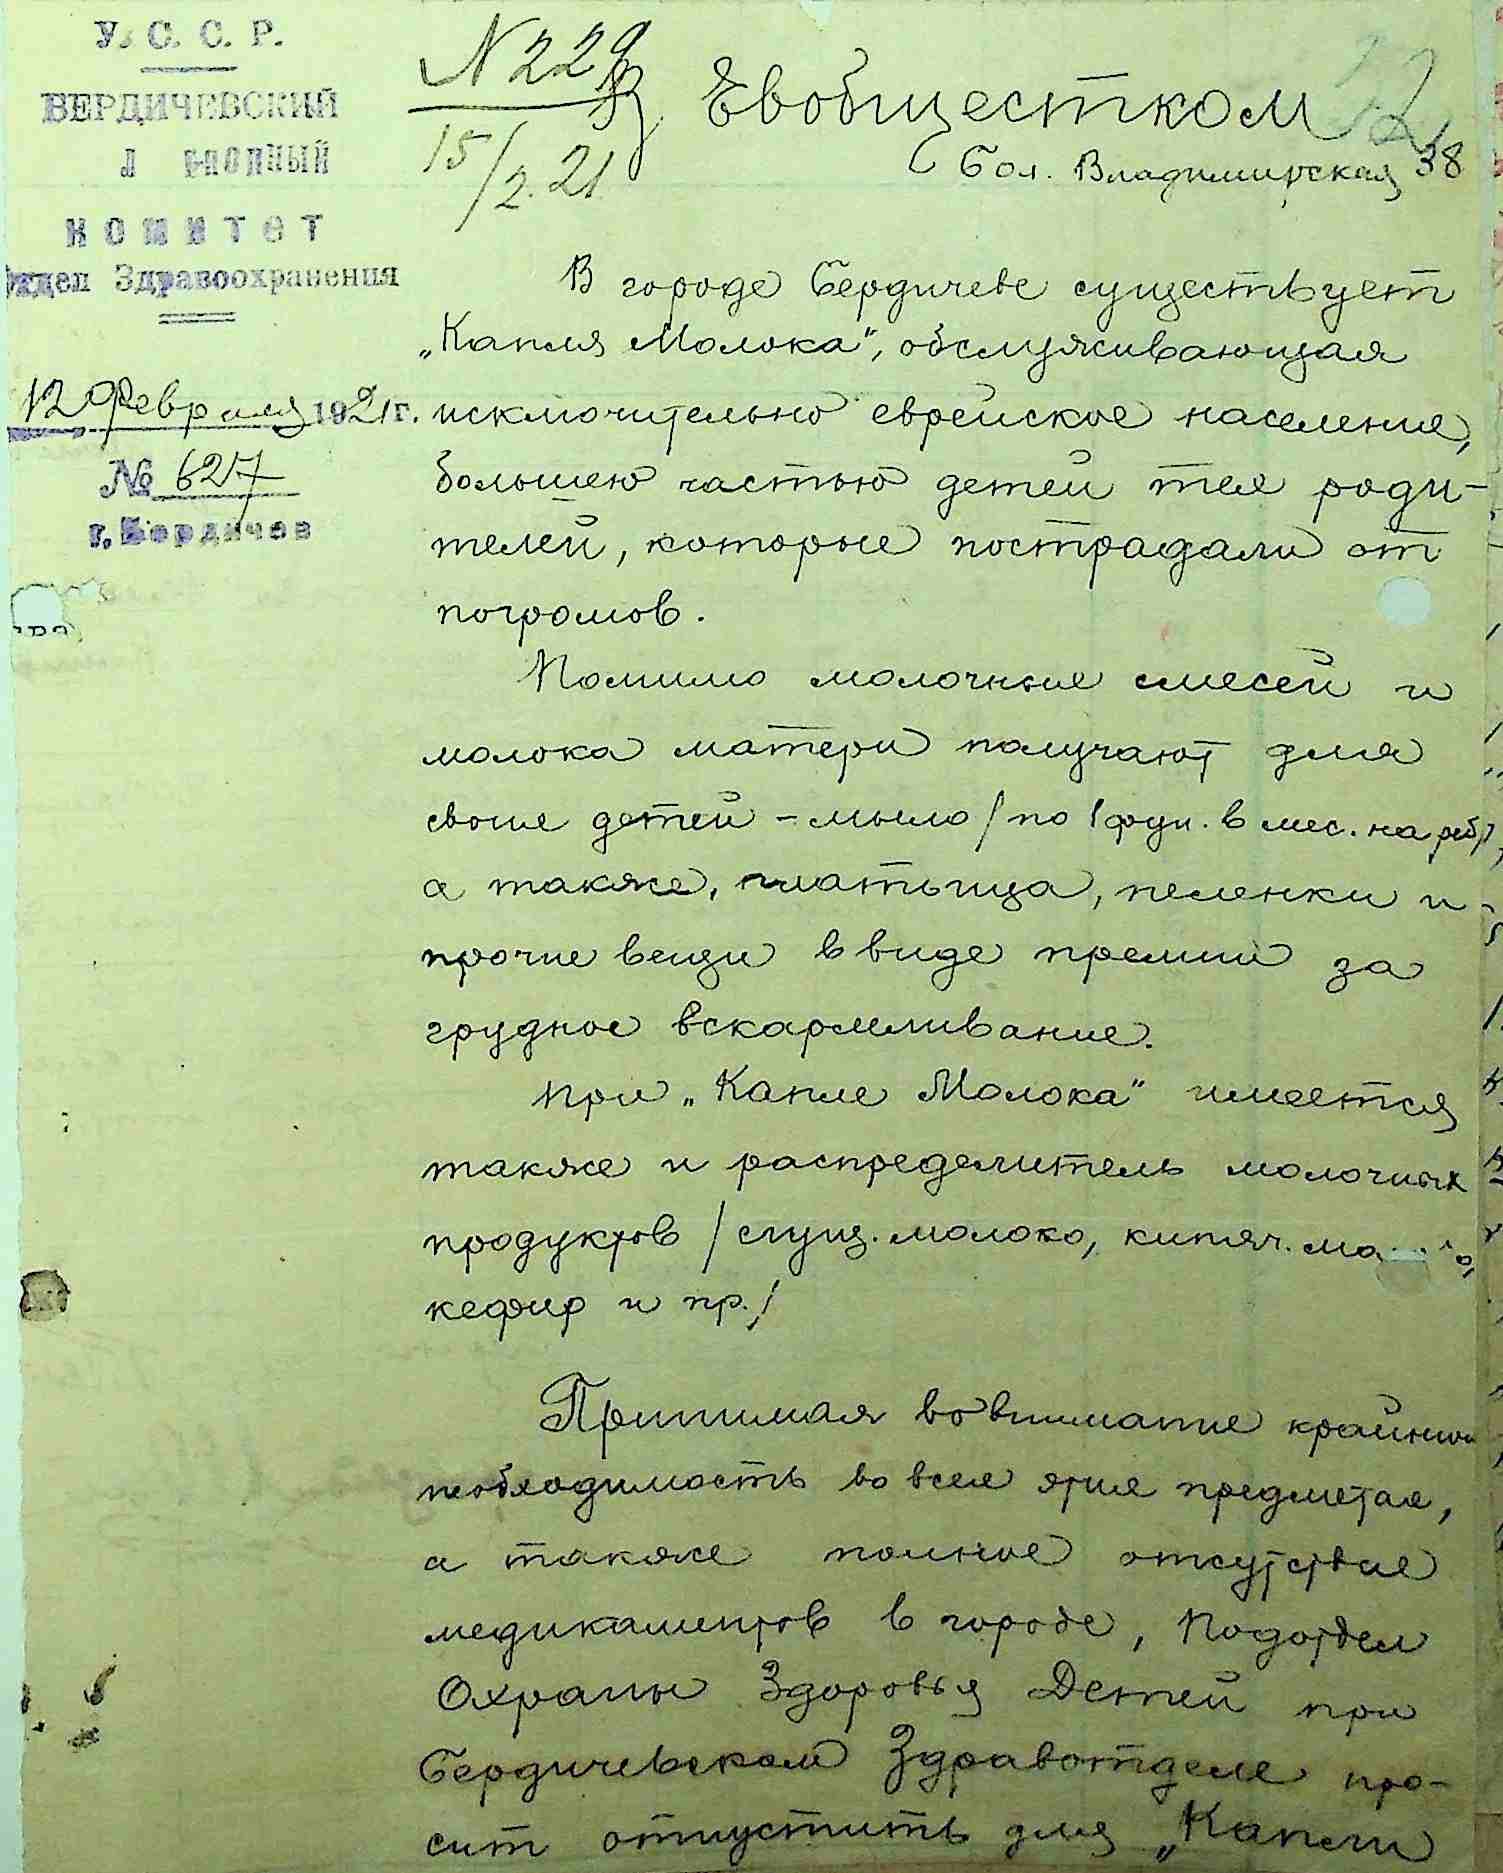 У. С. С. Р.
БЕРДИЧЕВСКИЙ
КОМИТЕТ
Отдел Здравоохранения
12 Февраля 1921 г.
№ 627
г. Бердичев
N 229
15/2. 21
В Евобщестком
Бол. Владимирская 38
В городе Бердичеве существует
„Капля Молока“, обслуживающая
исключительно еврейское население,
большею частью детей тех роди-
телей, которые пострадали от
погромов.
Помимо молочных смесей и
молока матери получают для
своих детей – мыло /по 1 фун. в мес. на реб/,
а также, платьица, пеленки и
прочие вещи в виде премии за
грудное вскармливание.
При „Капле Молока“ имеется
также и распределитель молочных
продуктов /сгущ. молоко, кипяч.
кефир и пр./
Принимая во внимание крайнюю
необходимость во всех этих предметах,
а также полное отсутствие
медикаментов в городе, Подотдел
Охраны Здоровья Детей при
Бердичевском Здравотделе про-
сит отпустить для „Капли